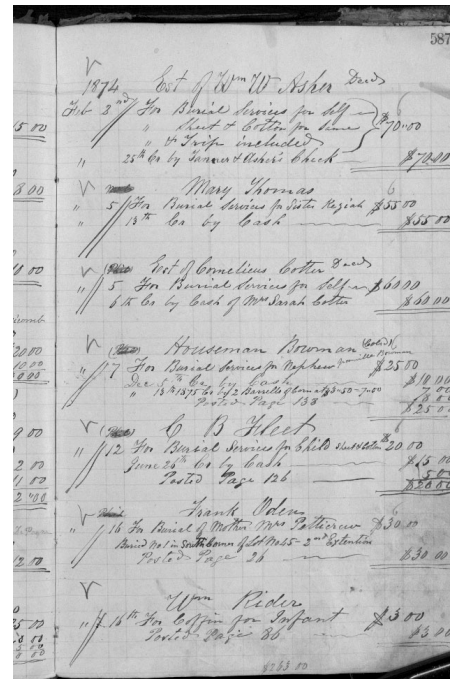 587
1874 Est of Wm W Asher Decd
Feb 2nd For Burial Services for Self
" Sheet & Cotton for Same $70.00
" & Trip included
" 25th Cr by Tanner & Asher's Check $70.00
Mary Thomas
" 5 For Burial Services for Sister Keziah $55.00
" 13th Cr by Cash $55.00
Est of Cornelious Cotter Decd
" 5 For Burial Services for Self $60.00
6th Cr by Cash of Mrs Sarah Cotter $60.00
Houseman Bowman (Cold)
" 7 For Burial Services for Nephew Bowman $25.00
Dec 5th Cr by Cash $10.00
" 13th 1875 Cr by 2 Barrells of Corn at $3-50-7.00 7.00
Posted Page 138 8.00
$25.00
C B Fleet
" 12 For Burial Services for Child Sheet & Cotton $20.00
June 26th Cr by Cash $15.00
Posted Page 126 5.00
$20.00
Frank Oden
" 16 For Burial of Mother Mrs Petticrew $30.00
Buried No 1 in South Corner of Lot No 45 - 2nd Extention
Posted Page 26 $30.00
Wm Rider
" 16th For Coffin for Infant $3.00
Posted Page 86 $3.00
$263.00